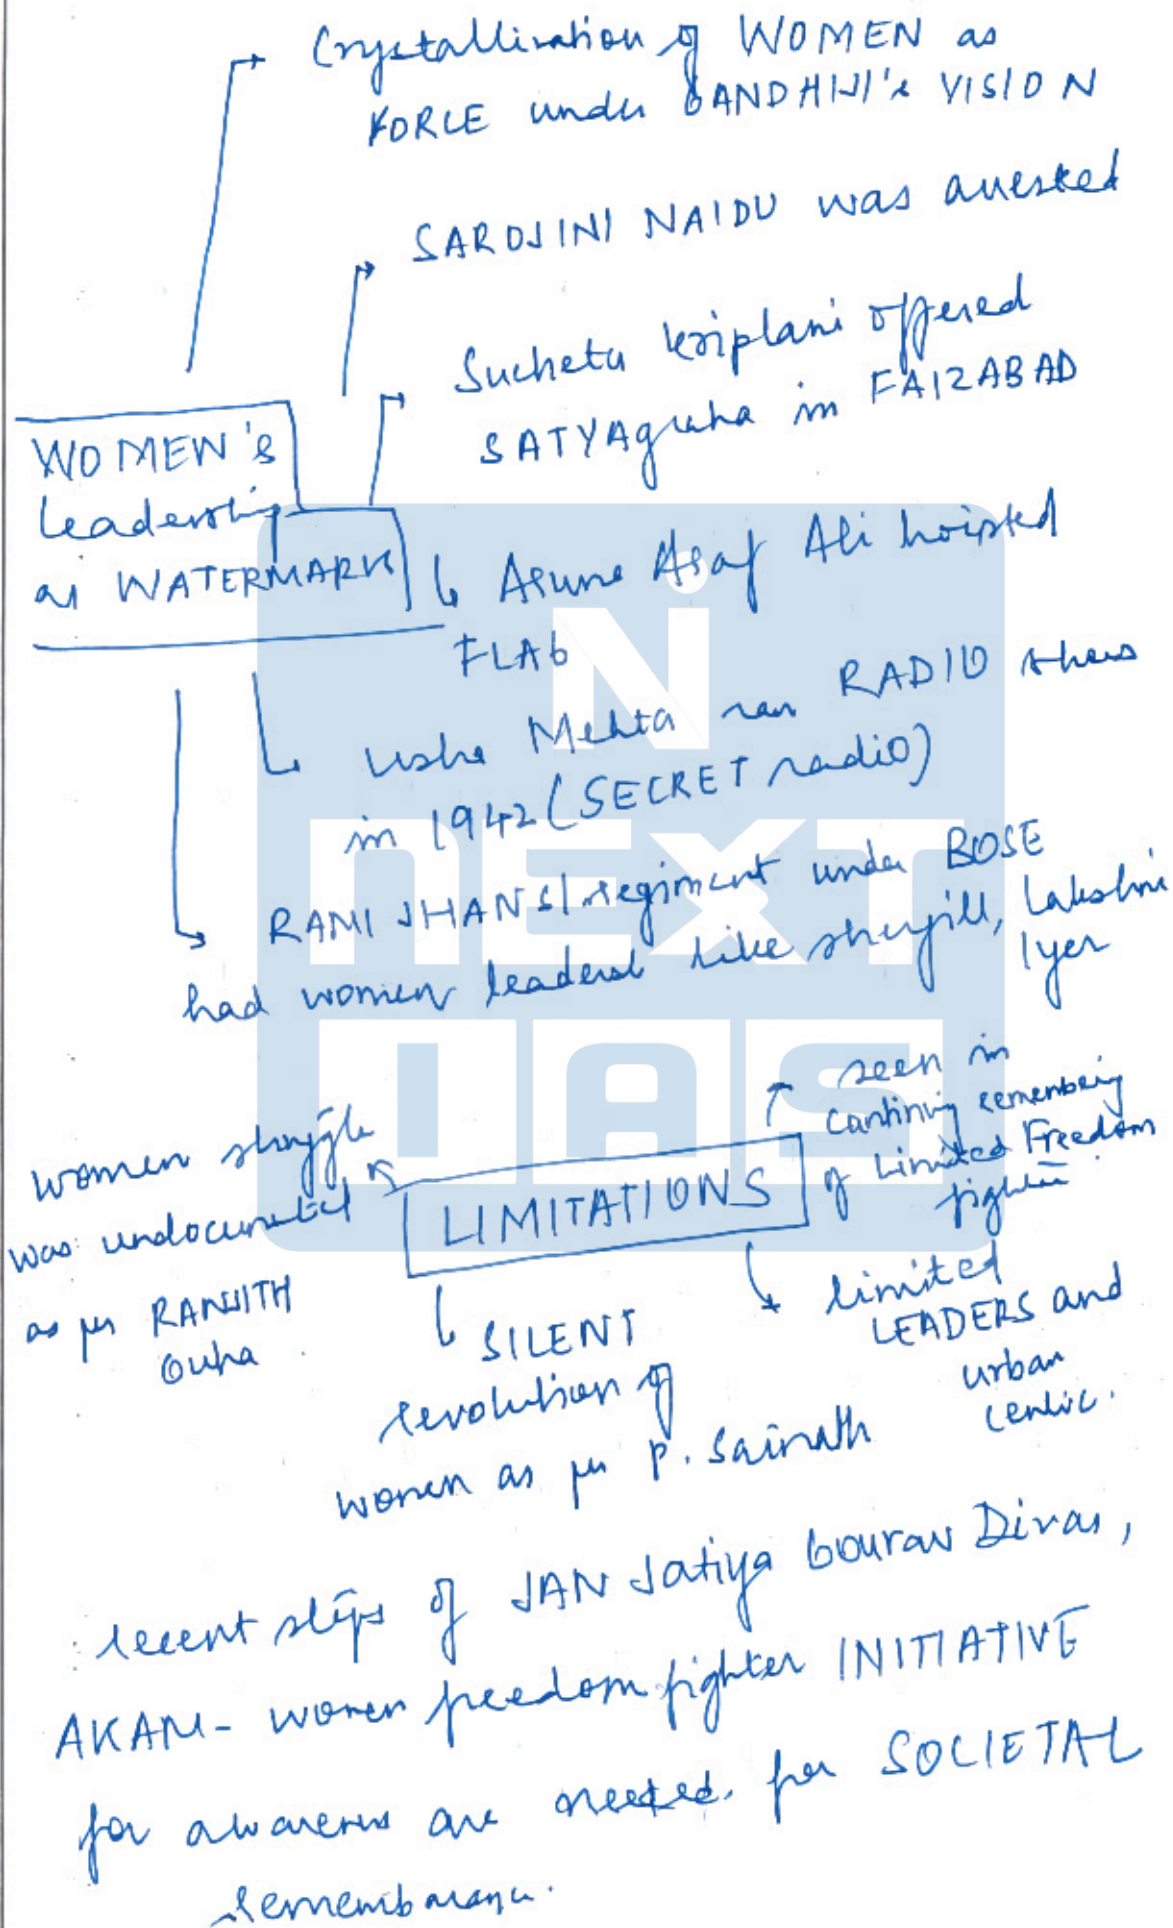 Crystallisation of WOMEN as
FORCE under GANDHIJI's VISION
SAROJINI NAIDU was arrested
Sucheta kriplani offered
SATYAgraha in FAIZABAD
WOMEN's
leadership
as WATERMARK
Aruna Asaf Ali hoisted
FLAG
Usha Mehta ran RADIO shows
in 1942 (SECRET radio)
RANI JHANSI regiment under BOSE
had women leaders like shergill, Lakshmi
Iyer
N
NEXT
IAS
women struggle
was undocumented
as per RANJITH
Guha
LIMITATIONS
seen in
continuing remembering
of Limited Freedom
fighters
SILENT
revolution of
women as per P. Sainath
limited
LEADERS and
urban
centric.
recent steps of JAN Jatiya Gourav Divas,
AKAM - women freedom fighter INITIATIVE
for awareness are needed. for SOCIETAL
remembrance.